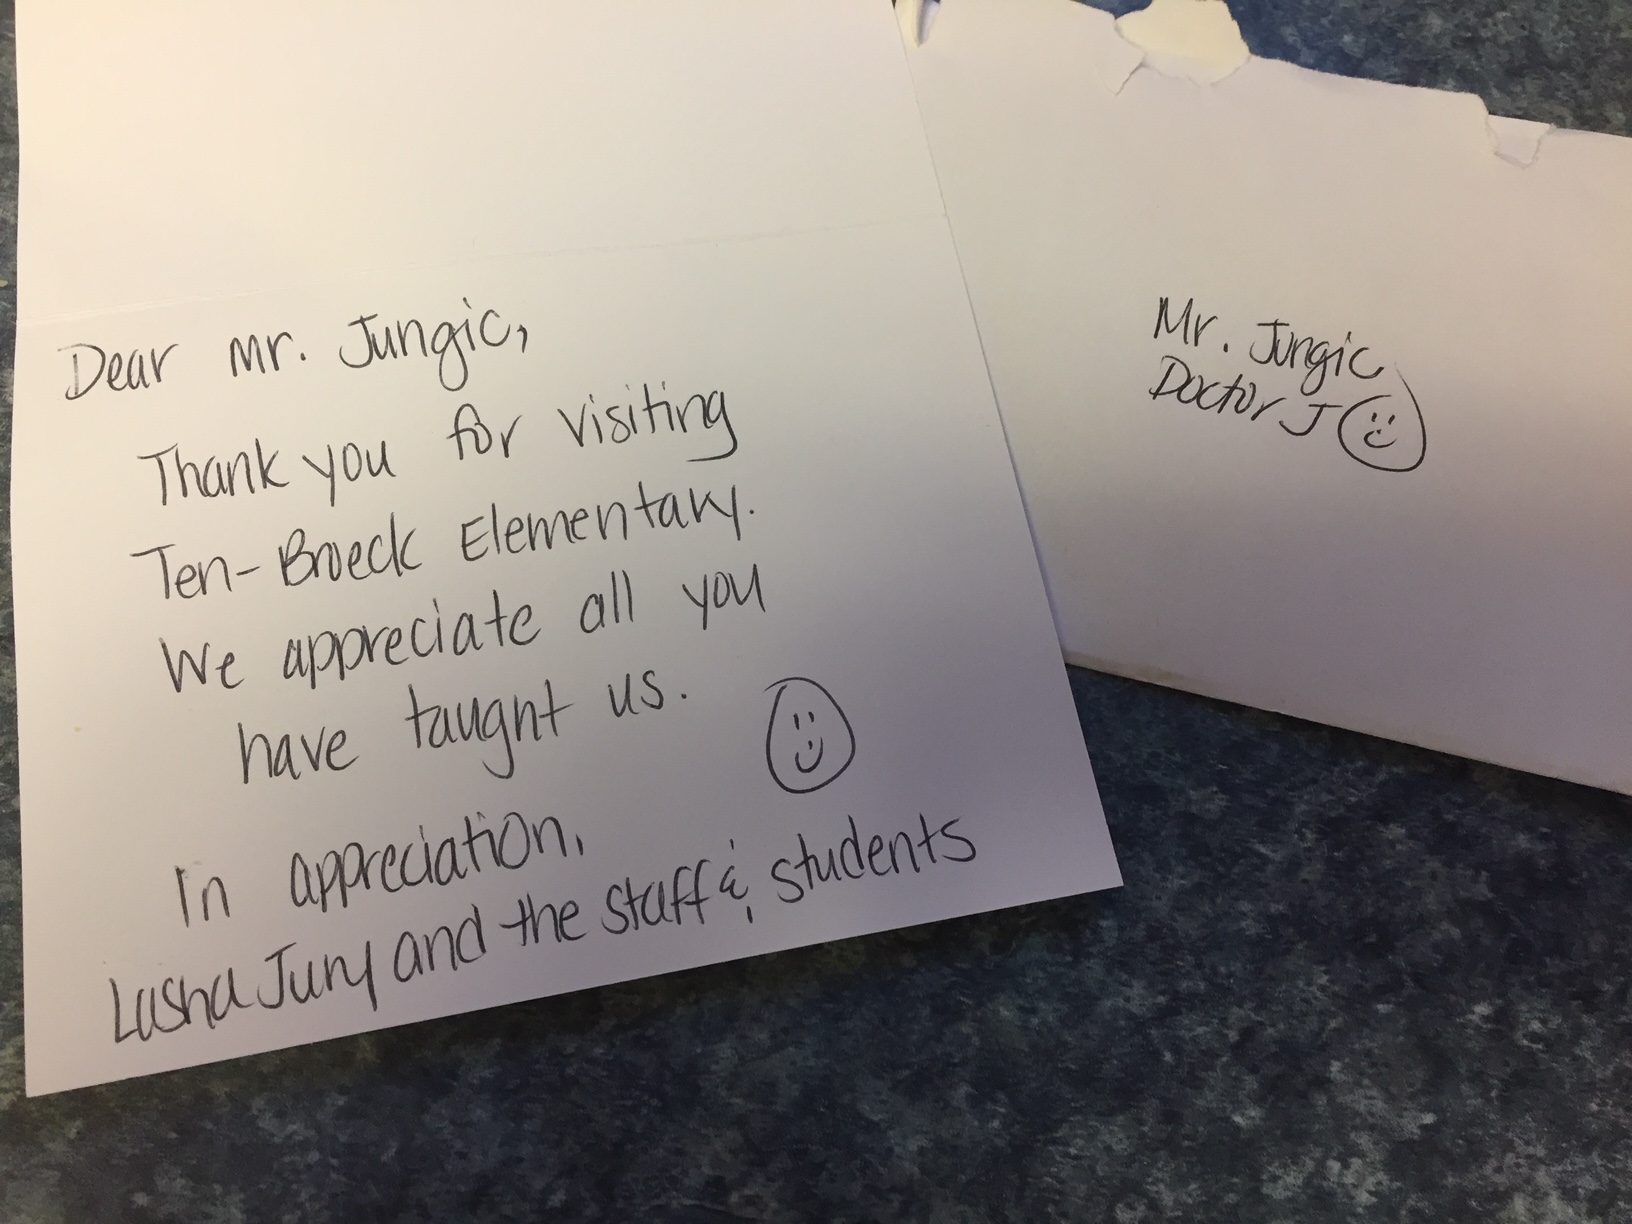 Dear Mr. Jungic,
Thank you for visiting
Ten-Broeck Elementary.
We appreciate all you
have taught us.
In appreciation,
Lusha Jury and the staff & students
Mr. Jungic
Doctor J